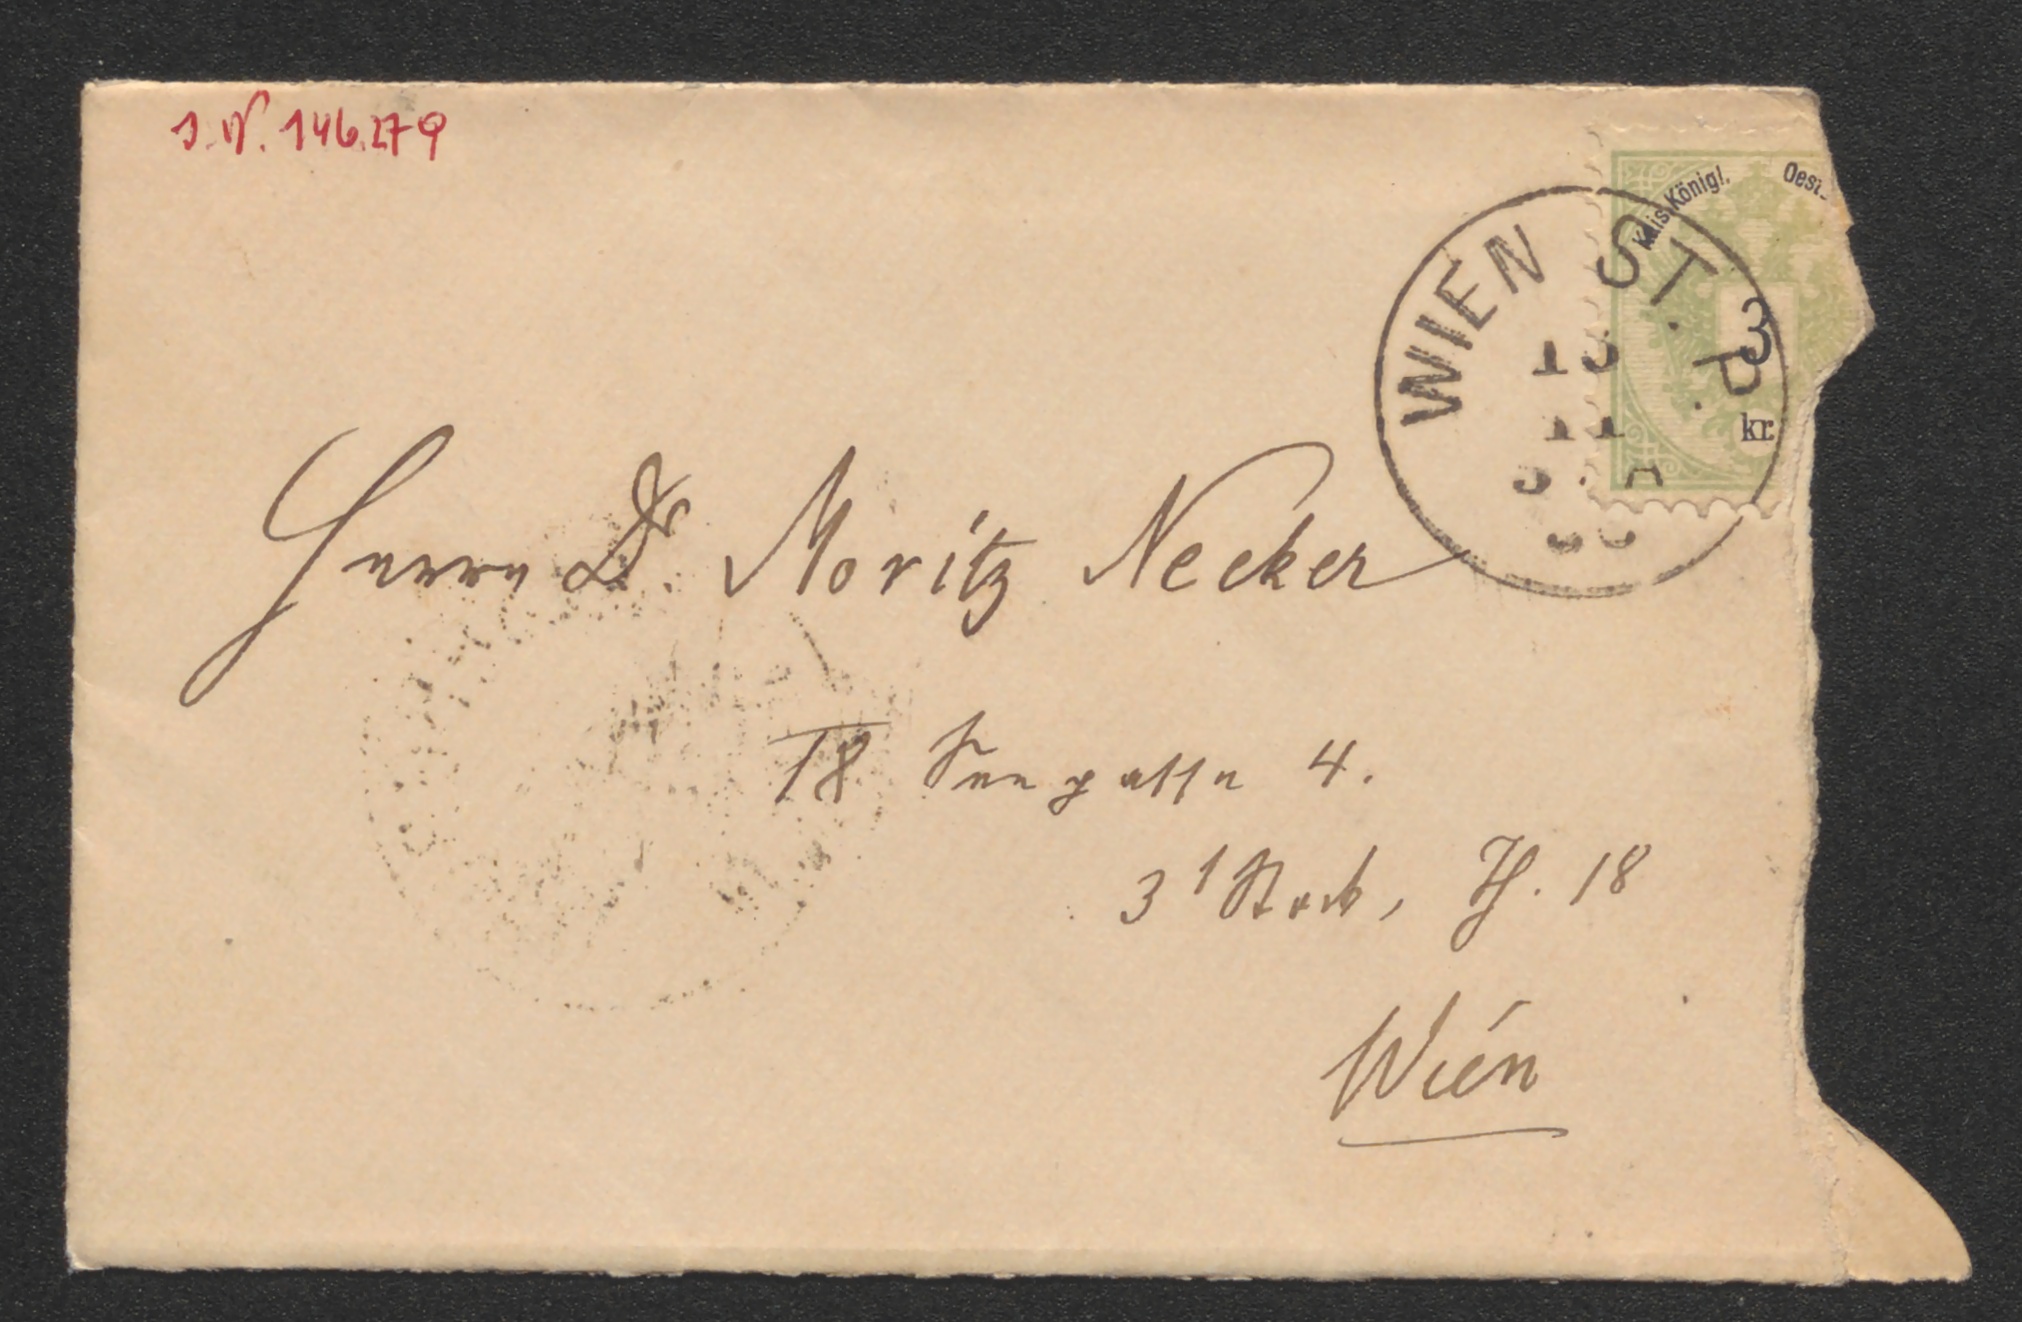 J. N. 146.279
Kais. Königl. Oest.
3
kr.
WIEN ST. P.
11
Herrn Dr. Moritz Necker
Seegasse 4.
3t Stock, Th. 18
Wien